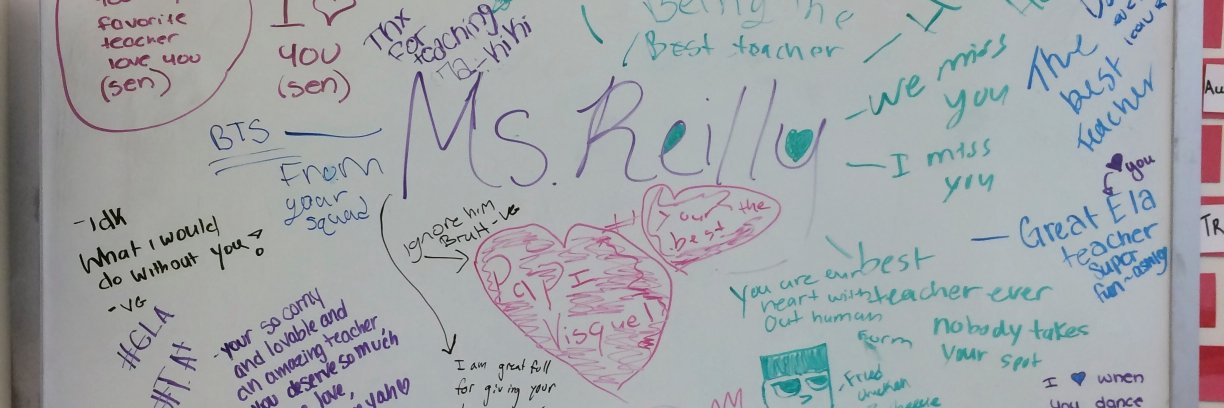 favorite
teacher
love you
(sen)
I
you
(sen)
Thx
for
teaching
Ta-hihi
Being the
Best teacher
We miss
you
I miss
you
The
best
teacher
Ms. Reilly
BTS
From
your
squad
-idk
What I would
do without you?
-VG
Ignore him
Bruh -VG
your the
best
Papi
Yisquel
you
Great Ela
teacher
super
fun-
You are
heart with
out human
Form
best
teacher ever
nobody takes
your spot
#ELA
-your so corny
and lovable and
an amazing teacher
you deserve so much
love,
I am great full
for giving your
Fried
I when
you dance
Au
TR